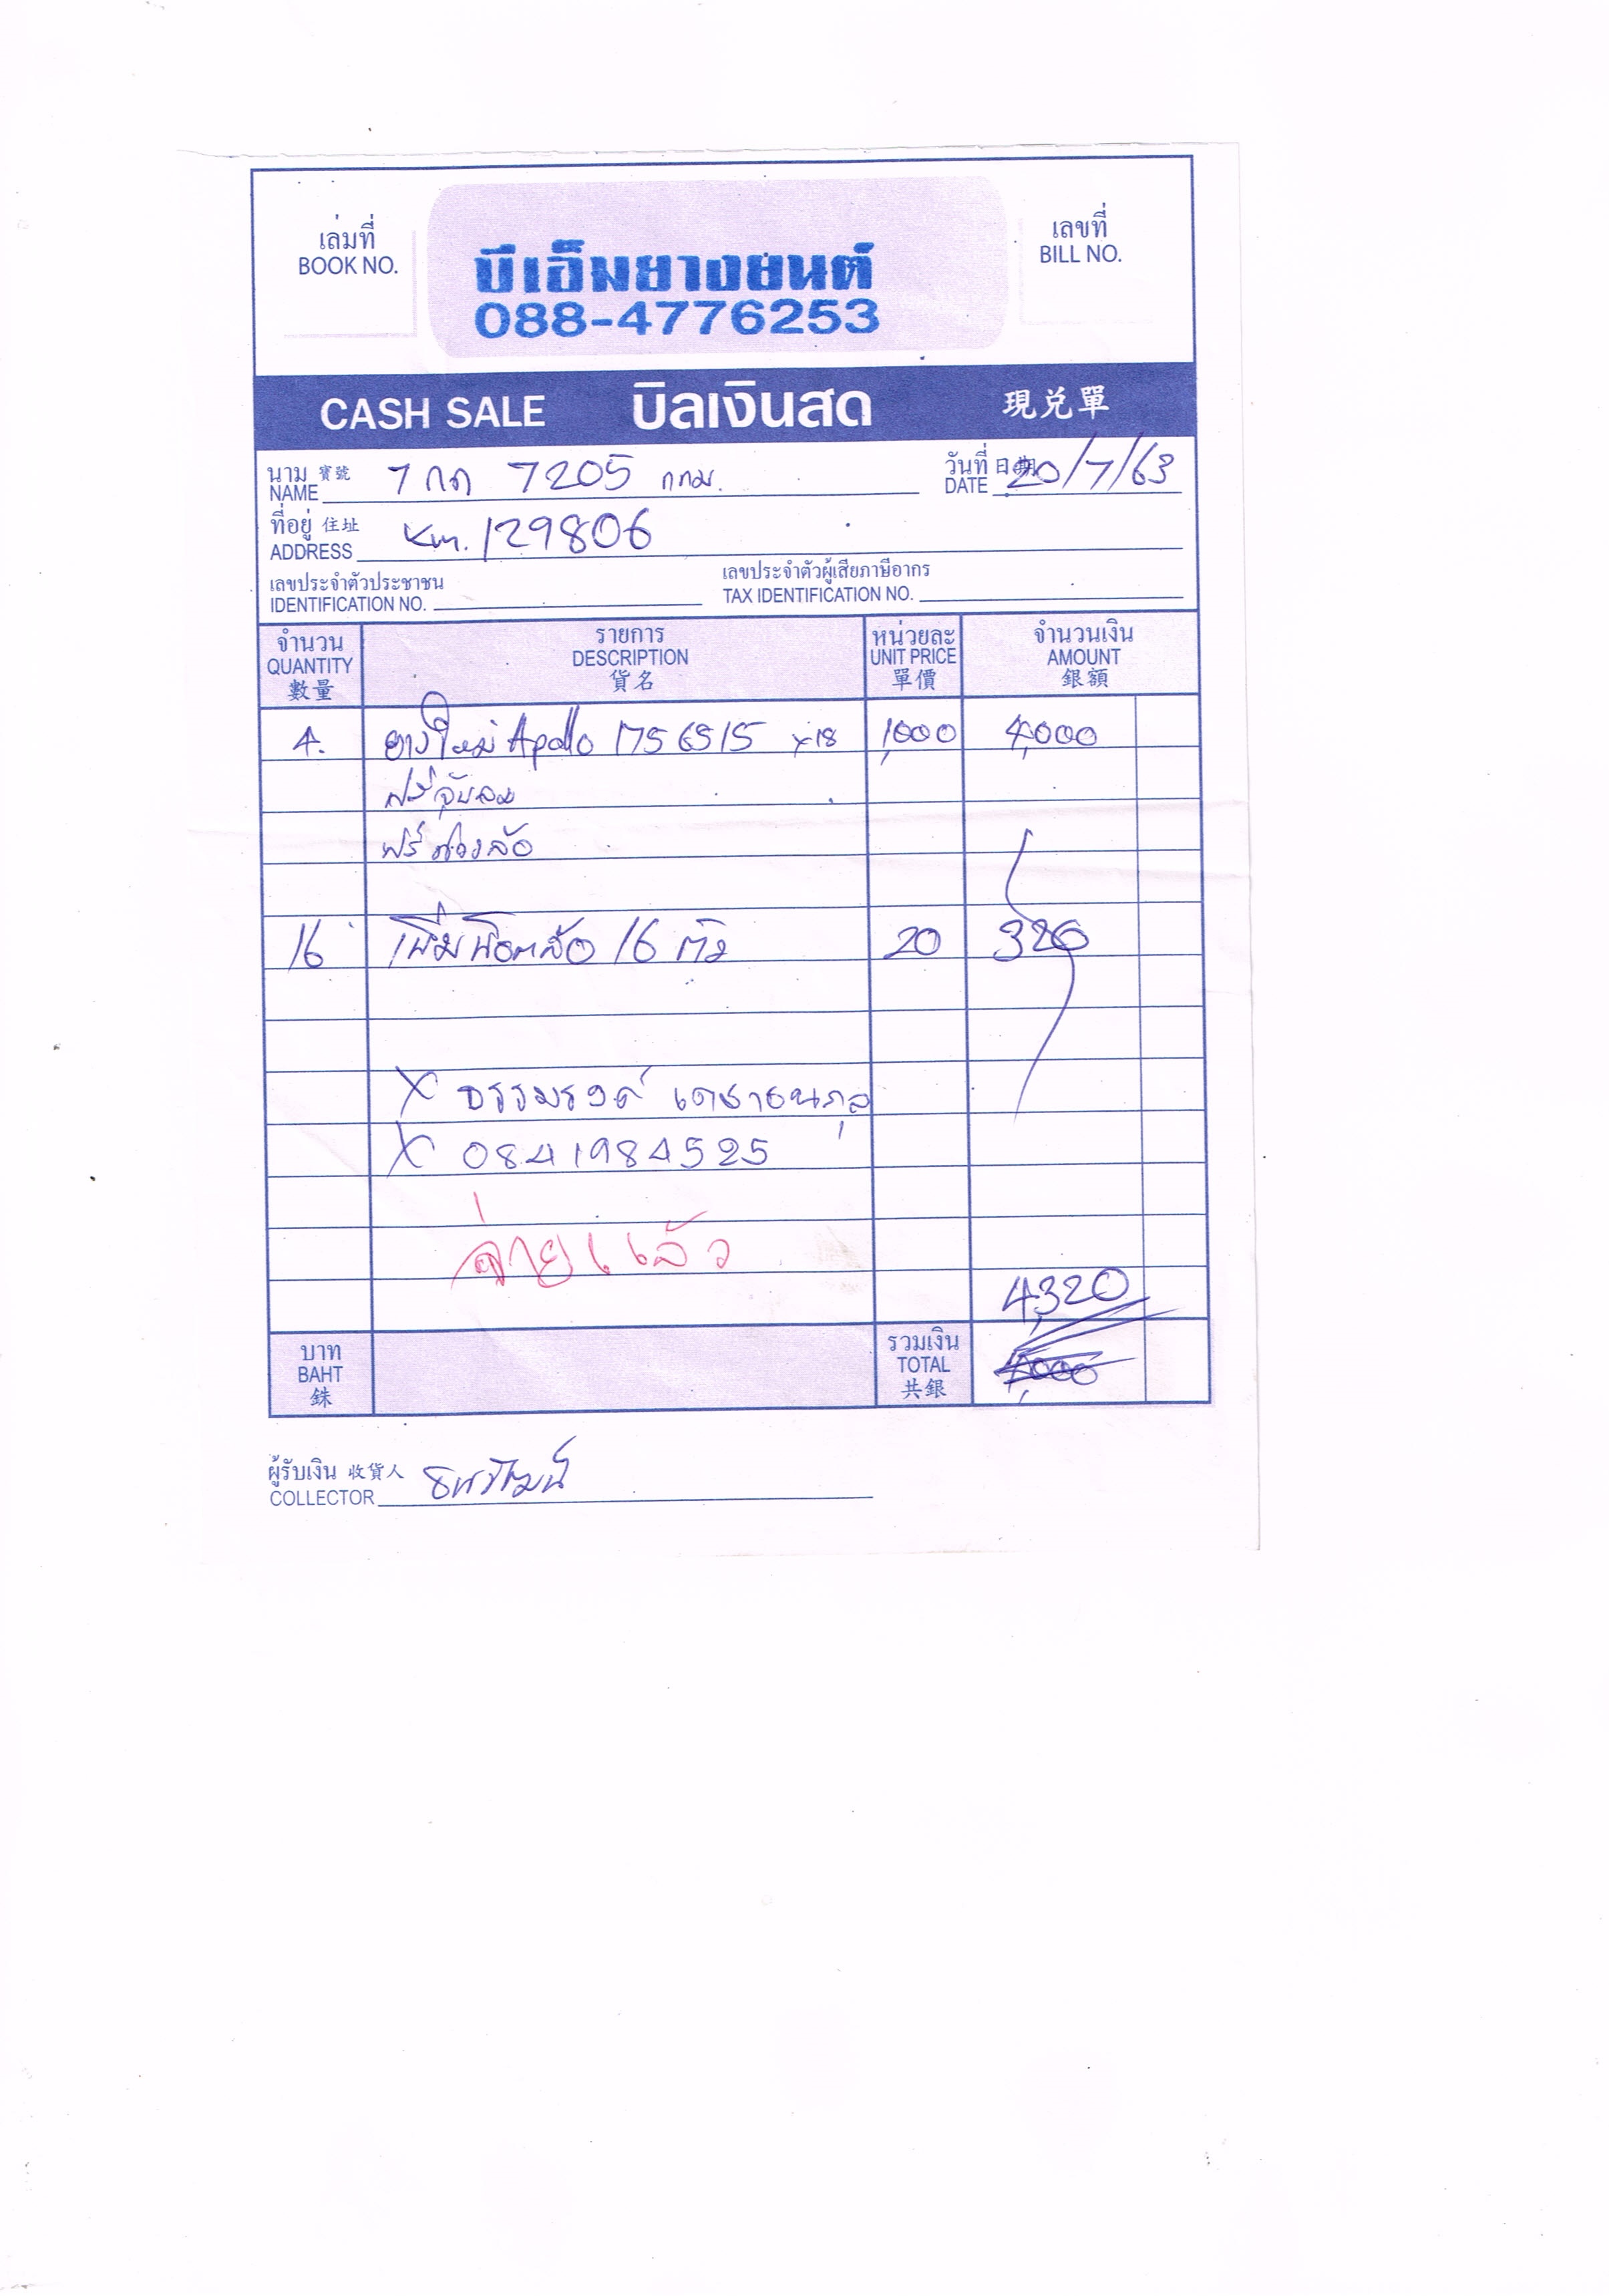 เล่มที่
BOOK NO.
บีเอ็มยางยนต์
088-4776253
เลขที่
BILL NO.
CASH SALE บิลเงินสด 現兑單
นาม 寶號 7 กด 7205 กทม.
NAME
วันที่ 日期 20/7/63
DATE
ที่อยู่ 住址 Km. 129806
ADDRESS
เลขประจำตัวประชาชน
IDENTIFICATION NO.
เลขประจำตัวผู้เสียภาษีอากร
TAX IDENTIFICATION NO.
จำนวน รายการ หน่วยละ จำนวนเงิน
QUANTITY DESCRIPTION UNIT PRICE AMOUNT
數量 貨名 單價 銀額
4. ยางใหม่ Apollo 1756515 x18 1,000 4,000
ฟรีจุ๊บลม
ฟรีถ่วงล้อ
16 เพิ่มน็อตล้อ 16 ตัว 20 320
X ธรรมรงค์
X 0841984525
จ่ายแล้ว
4,320
บาท รวมเงิน
BAHT TOTAL 4,000
銖 共銀
ผู้รับเงิน 收貨人
COLLECTOR